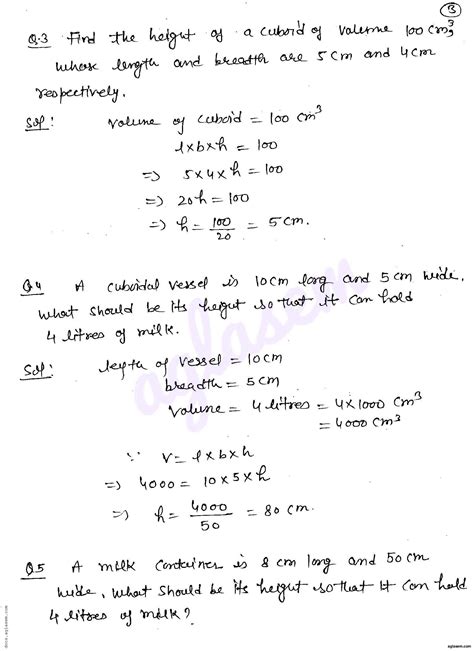 3
Q.3 Find the height of a cuboid of volume 100 cm³
whose length and breadth are 5 cm and 4 cm
respectively.
Sol: volume of cuboid = 100 cm³
l×b×h = 100
=) 5×4×h = 100
=) 20h = 100
=) h = 100/20 = 5 cm.
Q4 A cuboidal vessel is 10 cm long and 5 cm wide.
what should be its height so that it can hold
4 litres of milk.
Sol: length of vessel = 10 cm
breadth = 5 cm
volume = 4 litres = 4×1000 cm³
= 4000 cm³
∵ V = l×b×h
=) 4000 = 10×5×h
=) h = 4000/50 = 80 cm.
Q.5 A milk container is 8 cm long and 50 cm
wide, what should be its height so that it can hold
4 litres of milk?
aglasem
docs.aglasem.com
aglasem.com